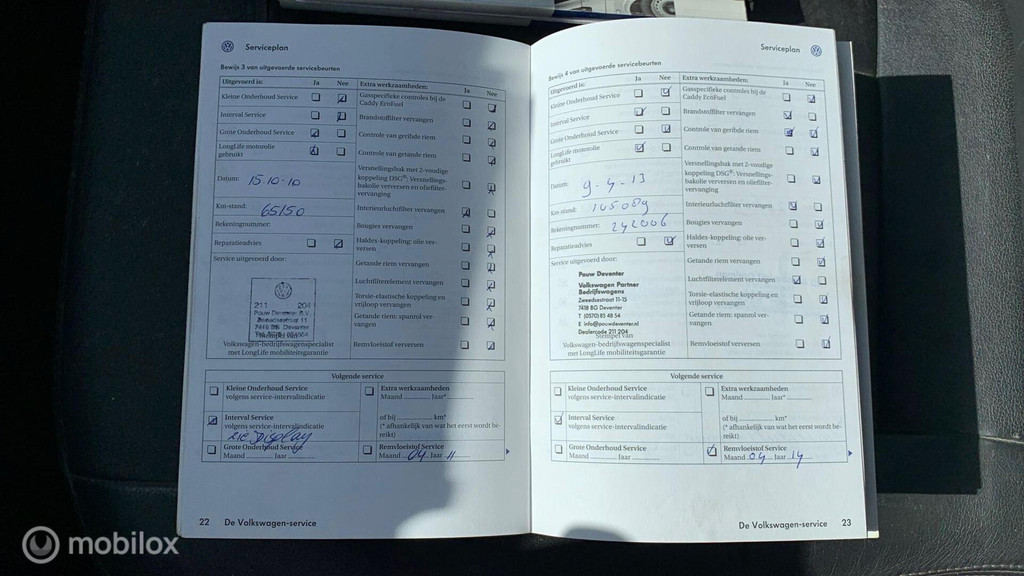 Serviceplan
Bewijs 3 van uitgevoerde servicebeurten
Uitgevoerd is: Ja Nee
Kleine Onderhoud Service
Interval Service
Grote Onderhoud Service
LongLife motorolie
gebruikt
Datum: 15-10-10
Km-stand: 65150
Rekeningnummer:
Reparatieadvies
Service uitgevoerd door:
211 204
Pouw Deventer B.V.
Zweedsestraat 11
Stempel van
Volkswagen-bedrijfswagenspecialist
met LongLife mobiliteitsgarantie
Extra werkzaamheden: Ja Nee
Gasspecifieke controles bij de
Caddy EcoFuel
Brandstoffilter vervangen
Controle van geribde riem
Controle van getande riem
Versnellingsbak met 2-voudige
koppeling DSG®: Versnellings-
bakolie verversen en oliefilter-
vervanging
Interieurluchtfilter vervangen
Bougies vervangen
Haldex-koppeling: olie ver-
versen
Getande riem vervangen
Luchtfilterelement vervangen
Torsie-elastische koppeling en
vrijloop vervangen
Getande riem: spanrol ver-
vangen
Remvloeistof verversen
Volgende service
Kleine Onderhoud Service
volgens service-intervalindicatie
Interval Service
volgens service-intervalindicatie
zie Display
Grote Onderhoud Service
Maand Jaar
Extra werkzaamheden
Maand Jaar*
of bij km*
(* afhankelijk van wat het eerst wordt be-
reikt)
Remvloeistof Service
Maand 04 Jaar 11
22 De Volkswagen-service
Serviceplan
Bewijs 4 van uitgevoerde servicebeurten
Uitgevoerd is: Ja Nee
Kleine Onderhoud Service
Interval Service
Grote Onderhoud Service
LongLife motorolie
gebruikt
Datum: 9-4-13
Km-stand: 145089
Rekeningnummer: 242006
Reparatieadvies
Service uitgevoerd door:
Pouw Deventer
Volkswagen Partner
Bedrijfswagens
Zweedsestraat 11-15
7418 BG Deventer
T (0570) 85 48 54
E info@pouwdeventer.nl
Dealercode 211 204
Stempel van
Volkswagen-bedrijfswagenspecialist
met LongLife mobiliteitsgarantie
Extra werkzaamheden: Ja Nee
Gasspecifieke controles bij de
Caddy EcoFuel
Brandstoffilter vervangen
Controle van geribde riem
Controle van getande riem
Versnellingsbak met 2-voudige
koppeling DSG®: Versnellings-
bakolie verversen en oliefilter-
vervanging
Interieurluchtfilter vervangen
Bougies vervangen
Haldex-koppeling: olie ver-
versen
Getande riem vervangen
Luchtfilterelement vervangen
Torsie-elastische koppeling en
vrijloop vervangen
Getande riem: spanrol ver-
vangen
Remvloeistof verversen
Volgende service
Kleine Onderhoud Service
volgens service-intervalindicatie
Interval Service
volgens service-intervalindicatie
Grote Onderhoud Service
Maand Jaar
Extra werkzaamheden
Maand Jaar*
of bij km*
(* afhankelijk van wat het eerst wordt be-
reikt)
Remvloeistof Service
Maand 04 Jaar 14
De Volkswagen-service 23
mobilox